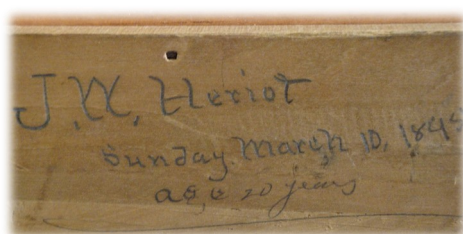 J. W. Heriot
Sunday. March 10,
age 20 years